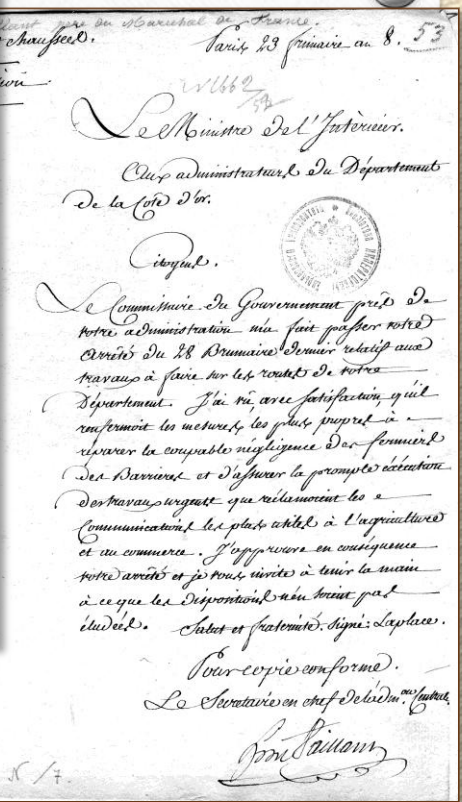 père du Maréchal de France.
chaussées.
Paris 23 frimaire an 8. 53
Le Ministre de l'Intérieur.
Aux administrateurs du Département
de la Cote d'or.
Citoyens.
Le Commissaire du Gouvernement près de
votre administration m'a fait passer votre
arrêté du 28 Brumaire dernier relatif aux
travaux à faire sur les routes de votre
Département. J'ai vu avec satisfaction qu'il
renfermoit les mesures les plus propres à
réparer la coupable négligence des fermiers
des Barrieres et d'assurer la prompte éxécution
des travaux urgents que réclamoient les
Communications les plus utiles à l'agriculture
et au commerce. J'approuve en conséquence
votre arrêté et je vous invite à tenir la main
à ce que les dispositions n'en soient pas
éludées. Salut et fraternité. Signé: Laplace.
Pour copie conforme.
Le Secretaire en chef de l'adm.on Centrale.
Vaillant
N /7.